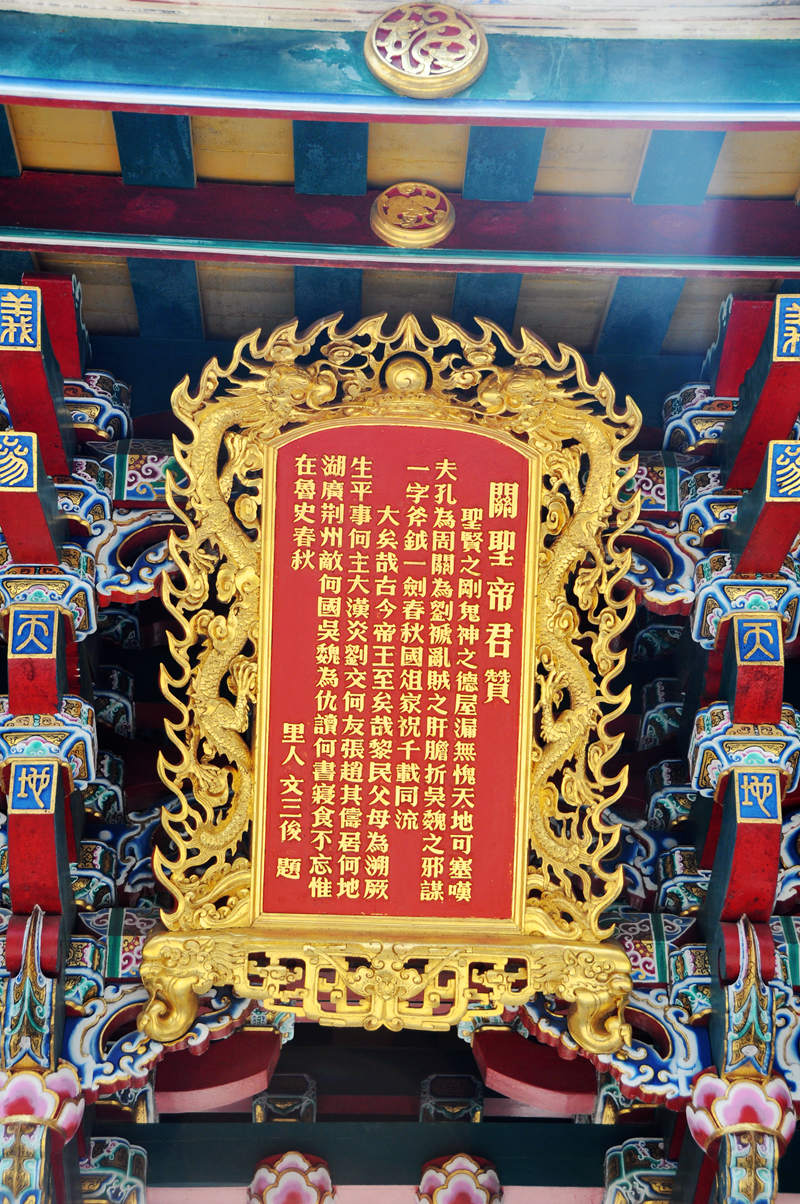 關聖帝君贊
聖賢之剛鬼神之德屋漏無愧天地可塞嘆
夫孔為周關為劉褫亂賊之肝膽折吳魏之邪謀
一字斧鉞一劍春秋國俎家祝千載同流
大矣哉古今帝王至矣哉黎民父母為溯厥
生平事何主大漢炎劉交何友張趙其儔居何地
湖廣荆州敵何國吳魏為仇讀何書寢食不忘惟
在魯史春秋
里人 文三俊 題
義
參
天
地
義
參
天
地